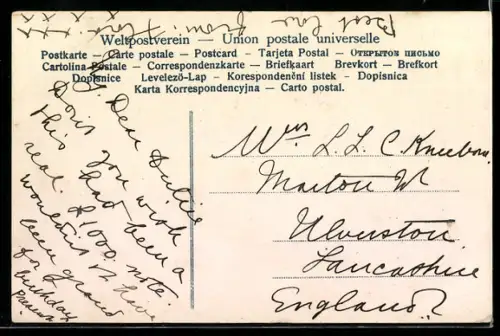 Best love from Flor. xxx
Weltpostverein — Union postale universelle
Postkarte — Carte postale — Postcard — Tarjeta Postal — Открытое письмо
Cartolina Postale — Correspondenzkarte — Briefkaart — Brevkort — Brefkort
Dopisnice Levelező-Lap — Korespondenční listek — Dopisnica
Karta Korrespondencyjna — Carto postal.
Dear
Don't you wish
this had been a
real $1000 note
wouldn't it have
been grand
for birthday
present
L. L. C. Kneebon
Ulverston
Lancashire
England